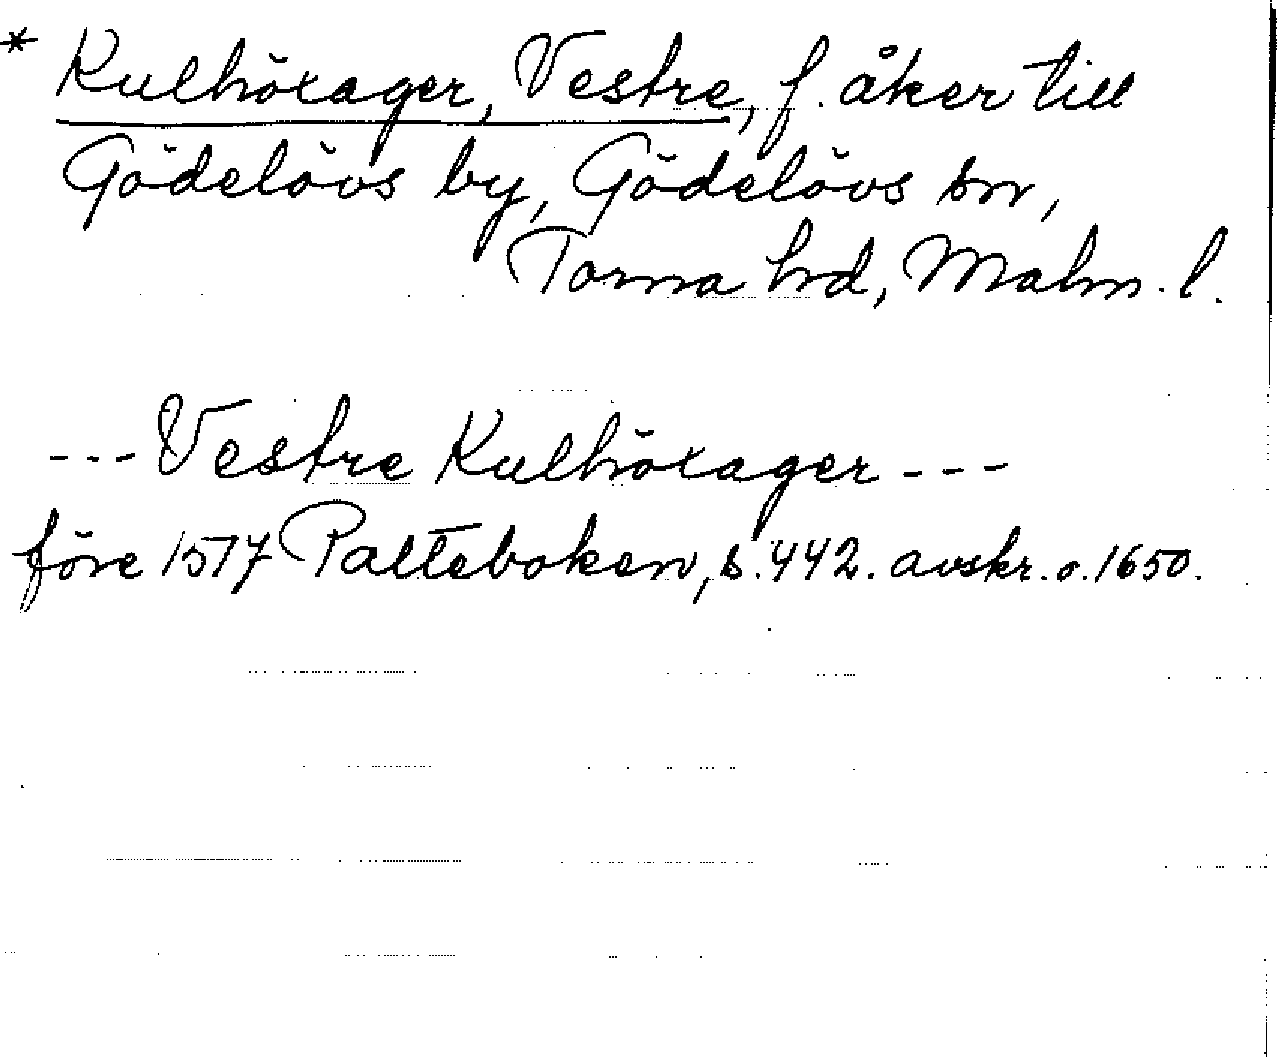 * Kulhöxager, Vestre, f. åker till
Gödelövs by, Gödelövs sn,
Torna hd, Malm. l.
--- Vestre Kulhöxager ---
före 1577 Palteboken, s. 442. avskr. o. 1650.